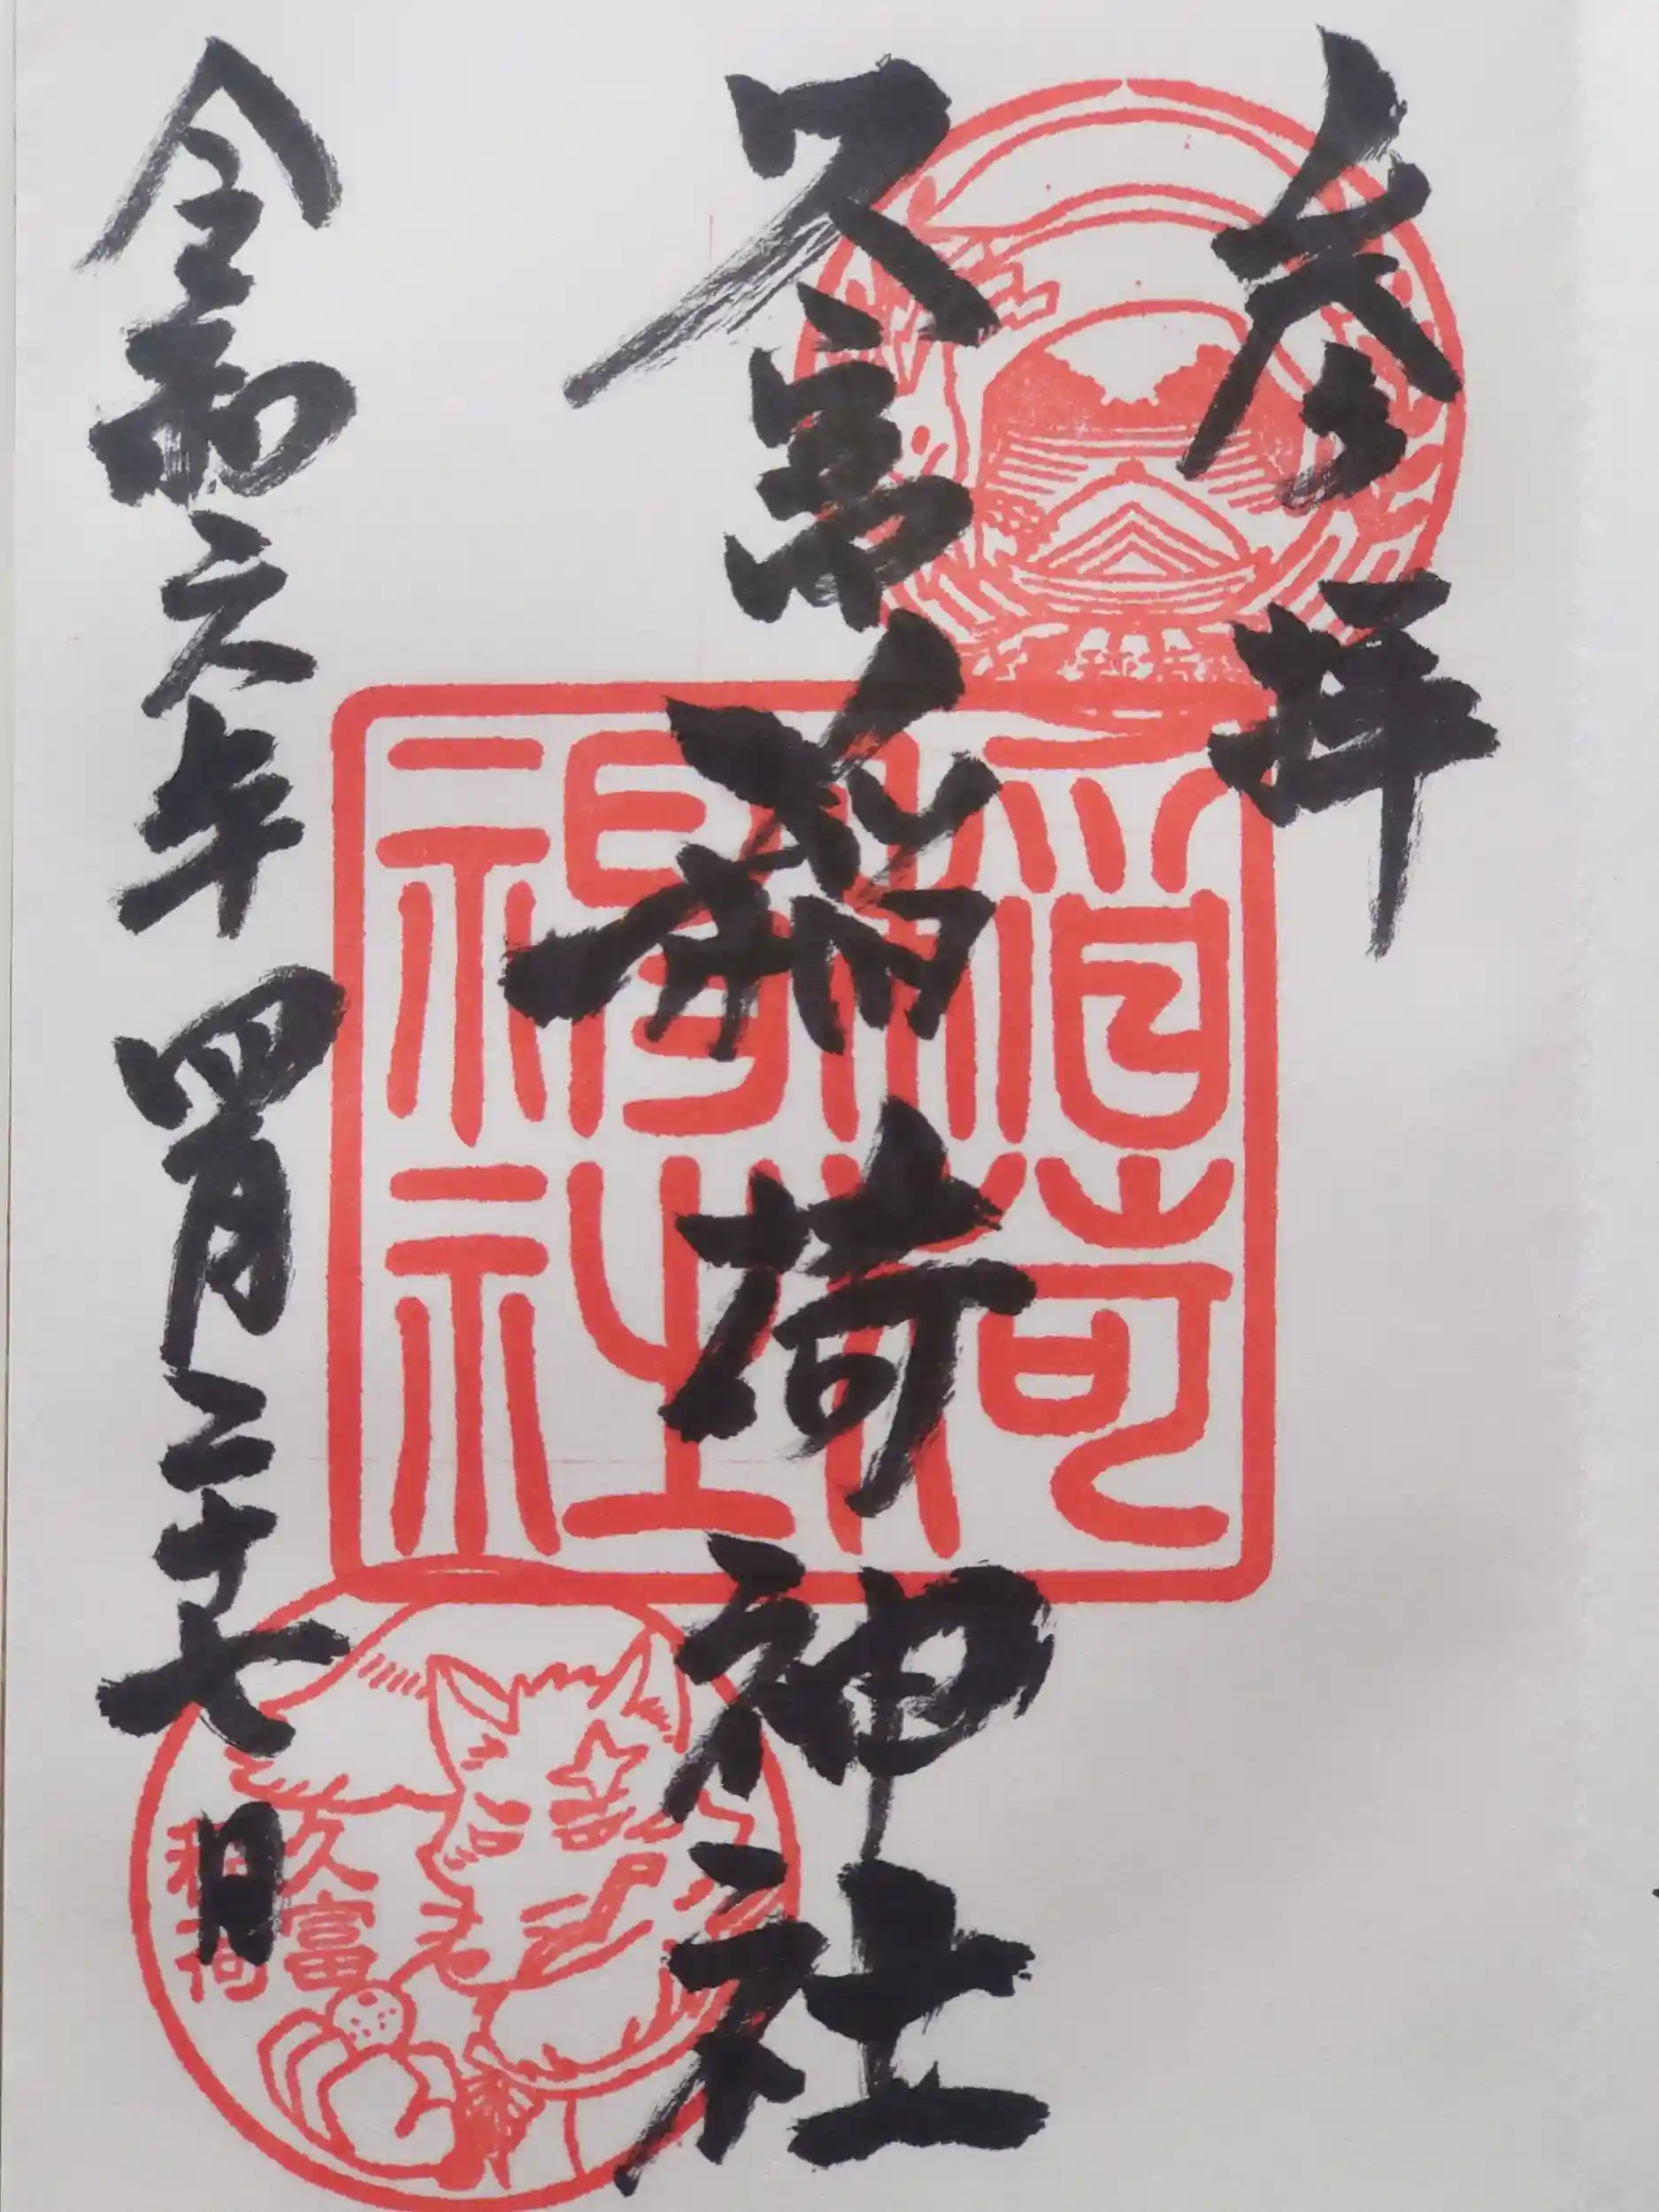 参拝
久富稲荷神社
令和六年四月二十七日
稲荷神社
久富
稲荷